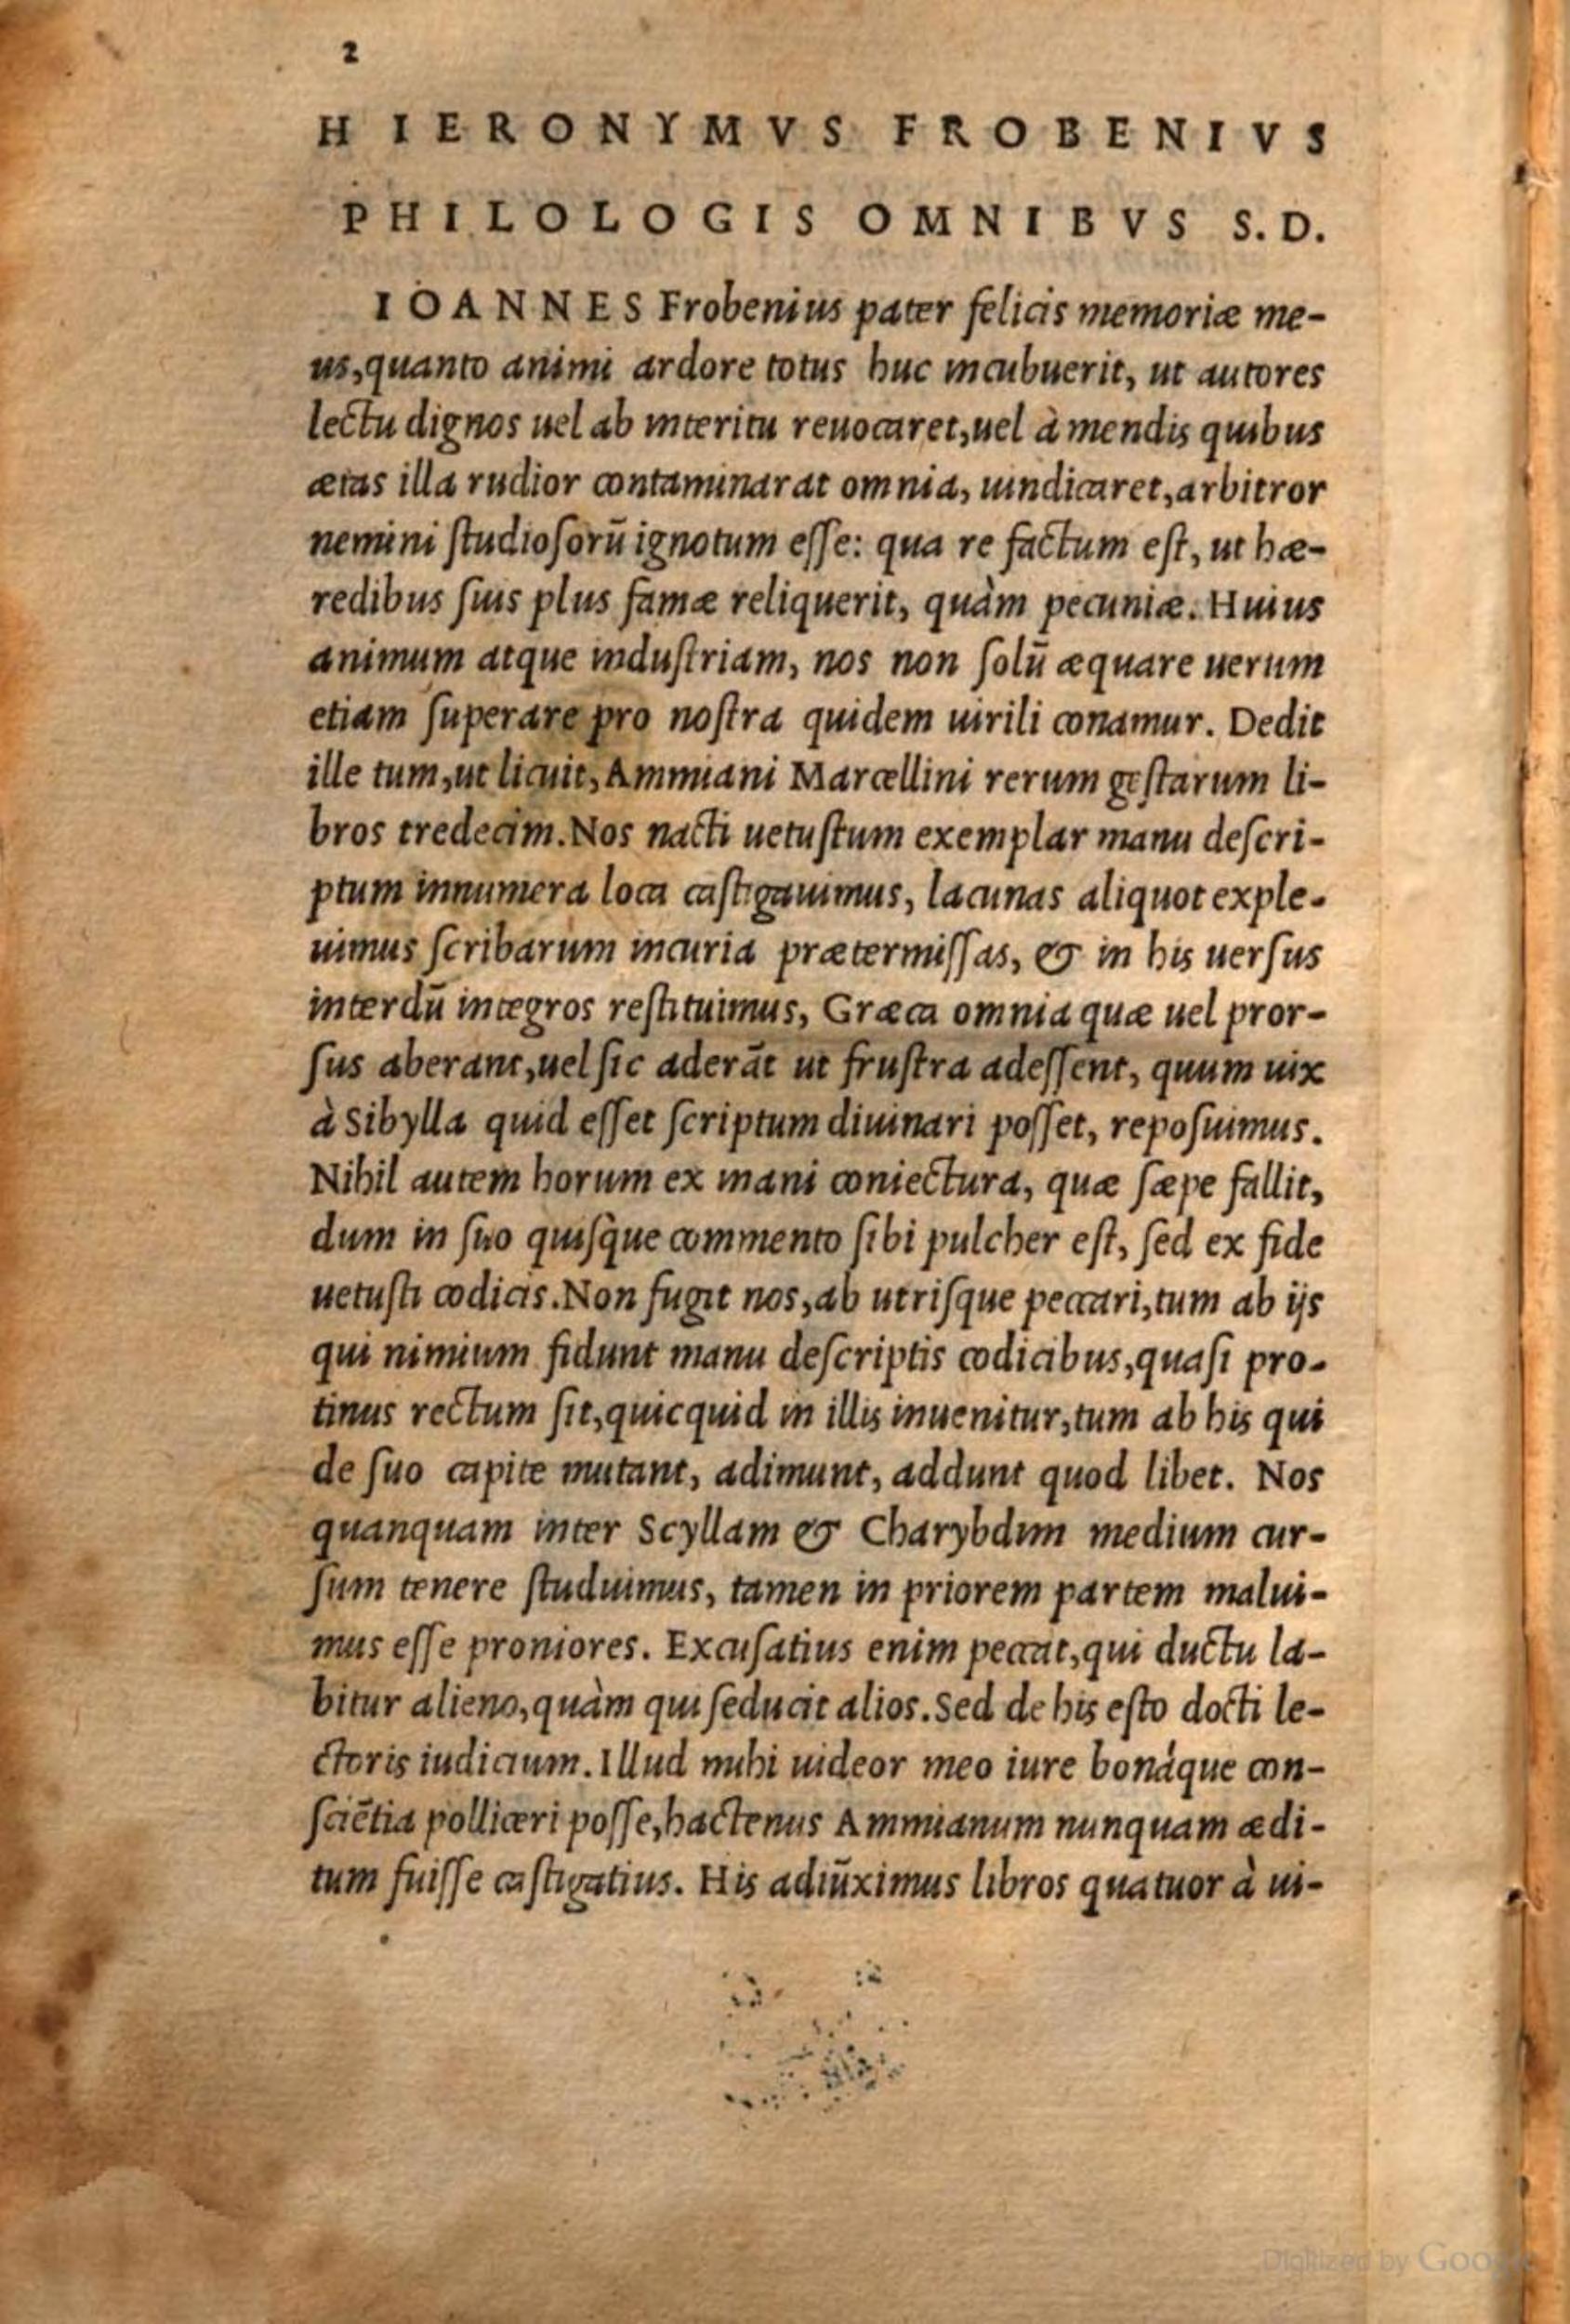 2
HIERONYMVS FROBENIVS
PHILOLOGIS OMNIBVS S.D.
IOANNES Frobenius pater felicis memoriæ me-
us,quanto animi ardore totus huc incubuerit, ut autores
lectu dignos uel ab interitu reuocaret,uel à mendis quibus
ætas illa rudior contaminarat omnia, uindicaret,arbitror
nemini ſtudioſorū ignotum eſſe: qua re factum eſt, ut hæ-
redibus ſuis plus famæ reliquerit, quàm pecuniæ. Huius
animum atque induſtriam, nos non ſolū æquare uerum
etiam ſuperare pro noſtra quidem uirili conamur. Dedit
ille tum,ut licuit,Ammiani Marcellini rerum geſtarum li-
bros tredecim.Nos nacti uetuſtum exemplar manu deſcri-
ptum innumera loca caſtigauimus, lacunas aliquot exple-
uimus ſcribarum incuria prætermiſſas, & in his uerſus
interdū integros reſtituimus, Græca omnia quæ uel pror-
ſus aberant,uel ſic aderāt ut fruſtra adeſſent, quum uix
à Sibylla quid eſſet ſcriptum diuinari poſſet, repoſuimus.
Nihil autem horum ex inani coniectura, quæ ſæpe fallit,
dum in ſuo quiſq̀ue commento ſibi pulcher eſt, ſed ex fide
uetuſti codicis.Non fugit nos,ab utriſque peccari,tum ab ijs
qui nimium fidunt manu deſcriptis codicibus,quaſi pro-
tinus rectum ſit,quicquid in illis inuenitur,tum ab his qui
de ſuo capite mutant, adimunt, addunt quod libet. Nos
quanquam inter Scyllam & Charybdim medium cur-
ſum tenere ſtuduimus, tamen in priorem partem malui-
mus eſſe proniores. Excuſatius enim peccat,qui ductu la-
bitur alieno,quàm qui ſeducit alios.Sed de his eſto docti le-
ctoris iudicium.Illud mihi uideor meo iure bonáque con-
ſciētia polliceri poſſe,hactenus Ammianum nunquam ædi-
tum fuiſſe caſtigatius. His adiūximus libros quatuor à ui-
Digitized by Google